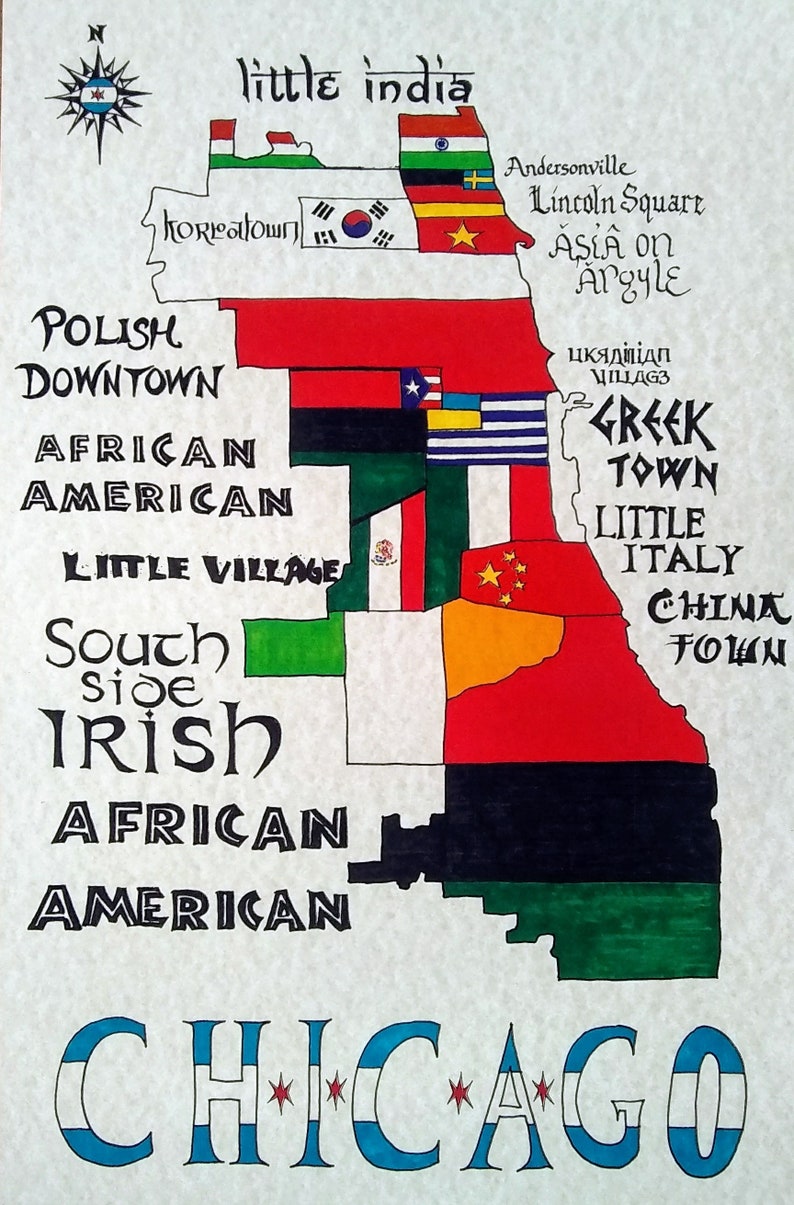 N
little india
Andersonville
Lincoln Square
Koreatown
ĂŞIÂ ON
ĂRGYLE
POLISH
DOWNTOWN
UKRAINIAN
VILLAG3
GREEK
TOWN
AFRICAN
AMERICAN
LITTLE
ITALY
LITTLE VILLAGE
CHINA
TOWN
South
side
IRISH
AFRICAN
AMERICAN
CHICAGO